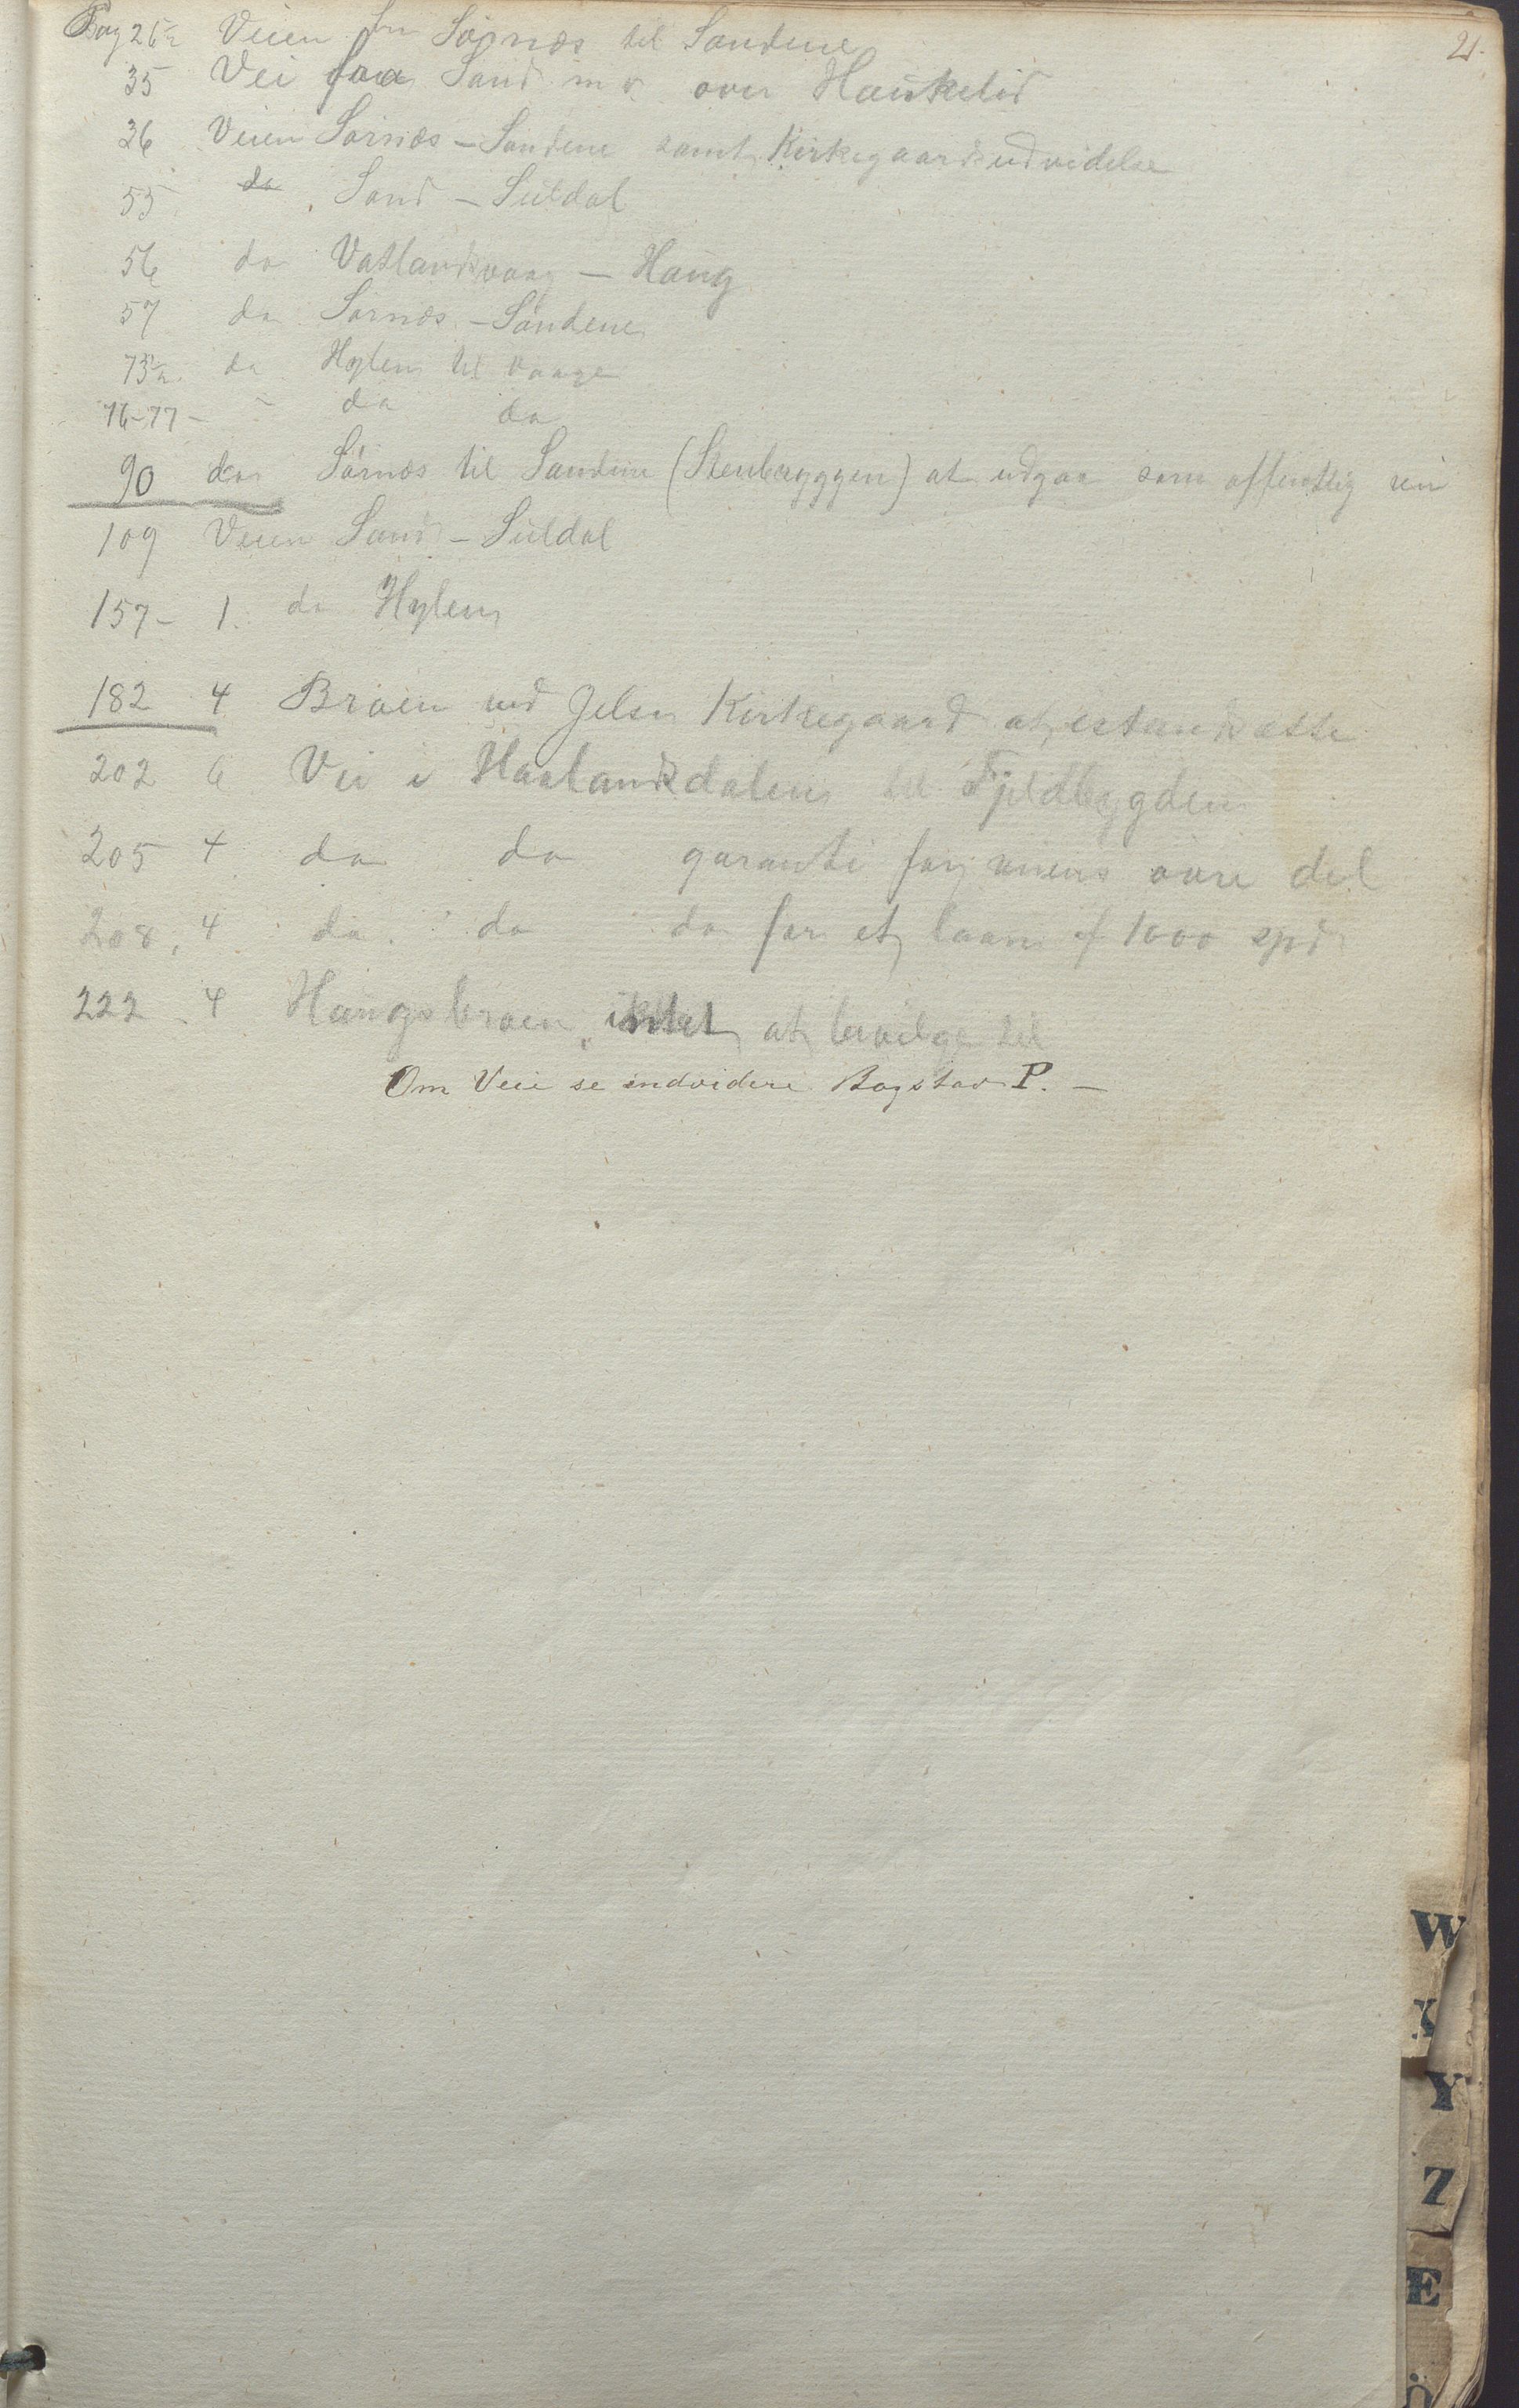 21.
Pag 26 Veien fra Sörnæs til Sandene
35 Vei fra Sand m v over Haukelid
36 Veien Sörnæs - Sandene samt Kirkegaardsudvidelse
55 do Sand - Suldal
56 do Vatlandsvaag - Haug
57 do Sörnæs - Sandene
73 do Hylen til Vaage
76-77 - " do do
90 do Sörnæs til Sandene (Stenbryggen) at udgaa som offentlig vei
109 Veien Sand - Suldal
157 - 1. do Hylen
182 4 Broen ved Jelse Kirkegaard at istandsætte
202 6 Vei i Haalandsdalen til Fjeldbygden
205 4 do do garanti for veiens övre del
208, 4 do do do for et laan af 1000 spd
222 4 Haugsbroen, intet at bevilge til
Om Veie se endvidere Bogstav P. -
W
X
Y
Z
E
Ö